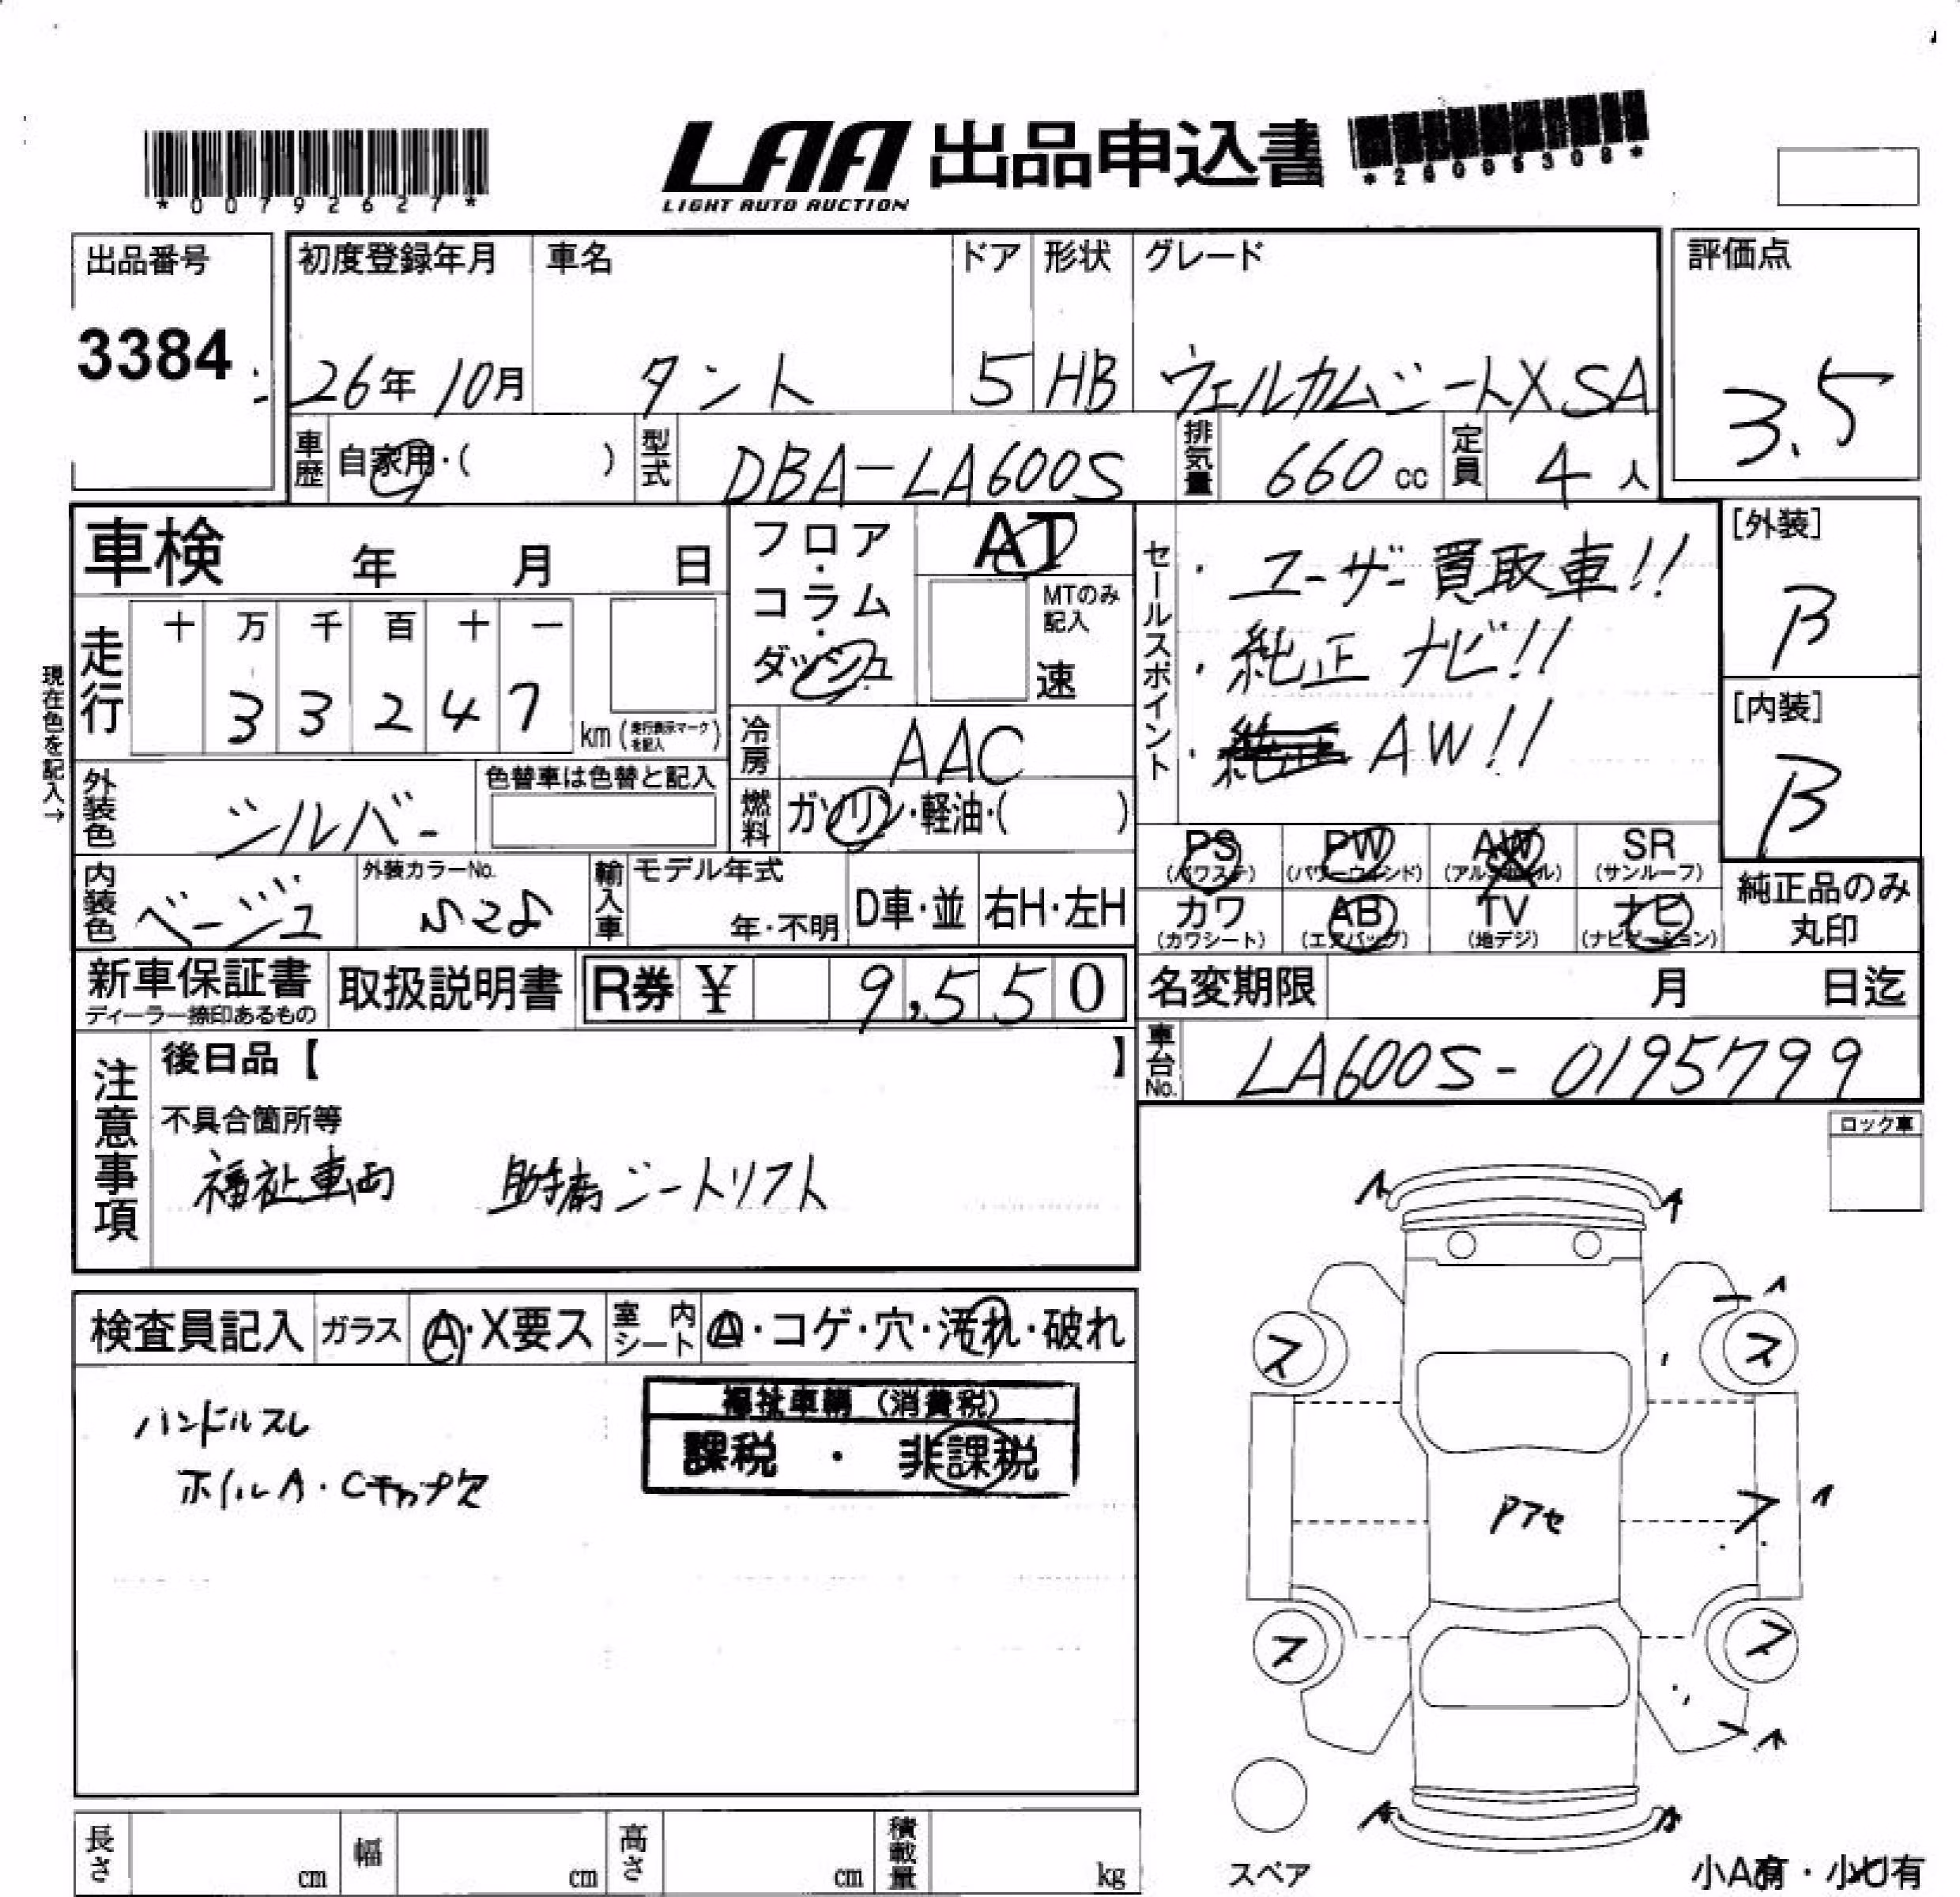 *00792627*
LAA 出品申込書
LIGHT AUTO AUCTION
出品番号
3384
初度登録年月 車名 ドア 形状 グレード
26年 10月 タント 5 HB ウェルカムシートX SA
評価点
3.5
車歴 自家用・( ) 型式 DBA-LA600S 排気量 660 cc 定員 4 人
車検 年 月 日
フロア・コラム・ダッシュ
AT
MTのみ記入
速
セールスポイント
・ユーザー買取車!!
・純正ナビ!!
・純正 AW!!
[外装]
B
[内装]
B
現在色を記入→
走行 十 万 千 百 十 一
3 3 2 4 7 km (走行表示マークを記入)
冷房 AAC
外装色 シルバー 色替車は色替と記入
燃料 ガソリン・軽油・( )
内装色 ベージュ 外装カラーNo. S28
輸入車 モデル年式 年・不明 D車・並 右H・左H
PS (パワステ) PW (パワーウィンド) AW (アルミホイール) SR (サンルーフ)
カワ (カワシート) AB (エアバッグ) TV (地デジ) ナビ (ナビゲーション)
純正品のみ
丸印
新車保証書
ディーラー捺印あるもの
取扱説明書 R券 ¥ 9,550
名変期限 月 日迄
車台No. LA600S-0195799
注意事項
後日品【 】
不具合箇所等
福祉車両 助手席シートリフト
ロック車
検査員記入 ガラス A・X要ス 室内シート A・コゲ・穴・汚れ・破れ
ハンドルスレ
ホイルA・Cキャップ欠
福祉車輌(消費税)
課税 ・ 非課税
A
A
ス
ス
Pアセ
ス
ス
スペア
小A有・小U有
長さ cm 幅 cm 高さ cm 積載量 kg